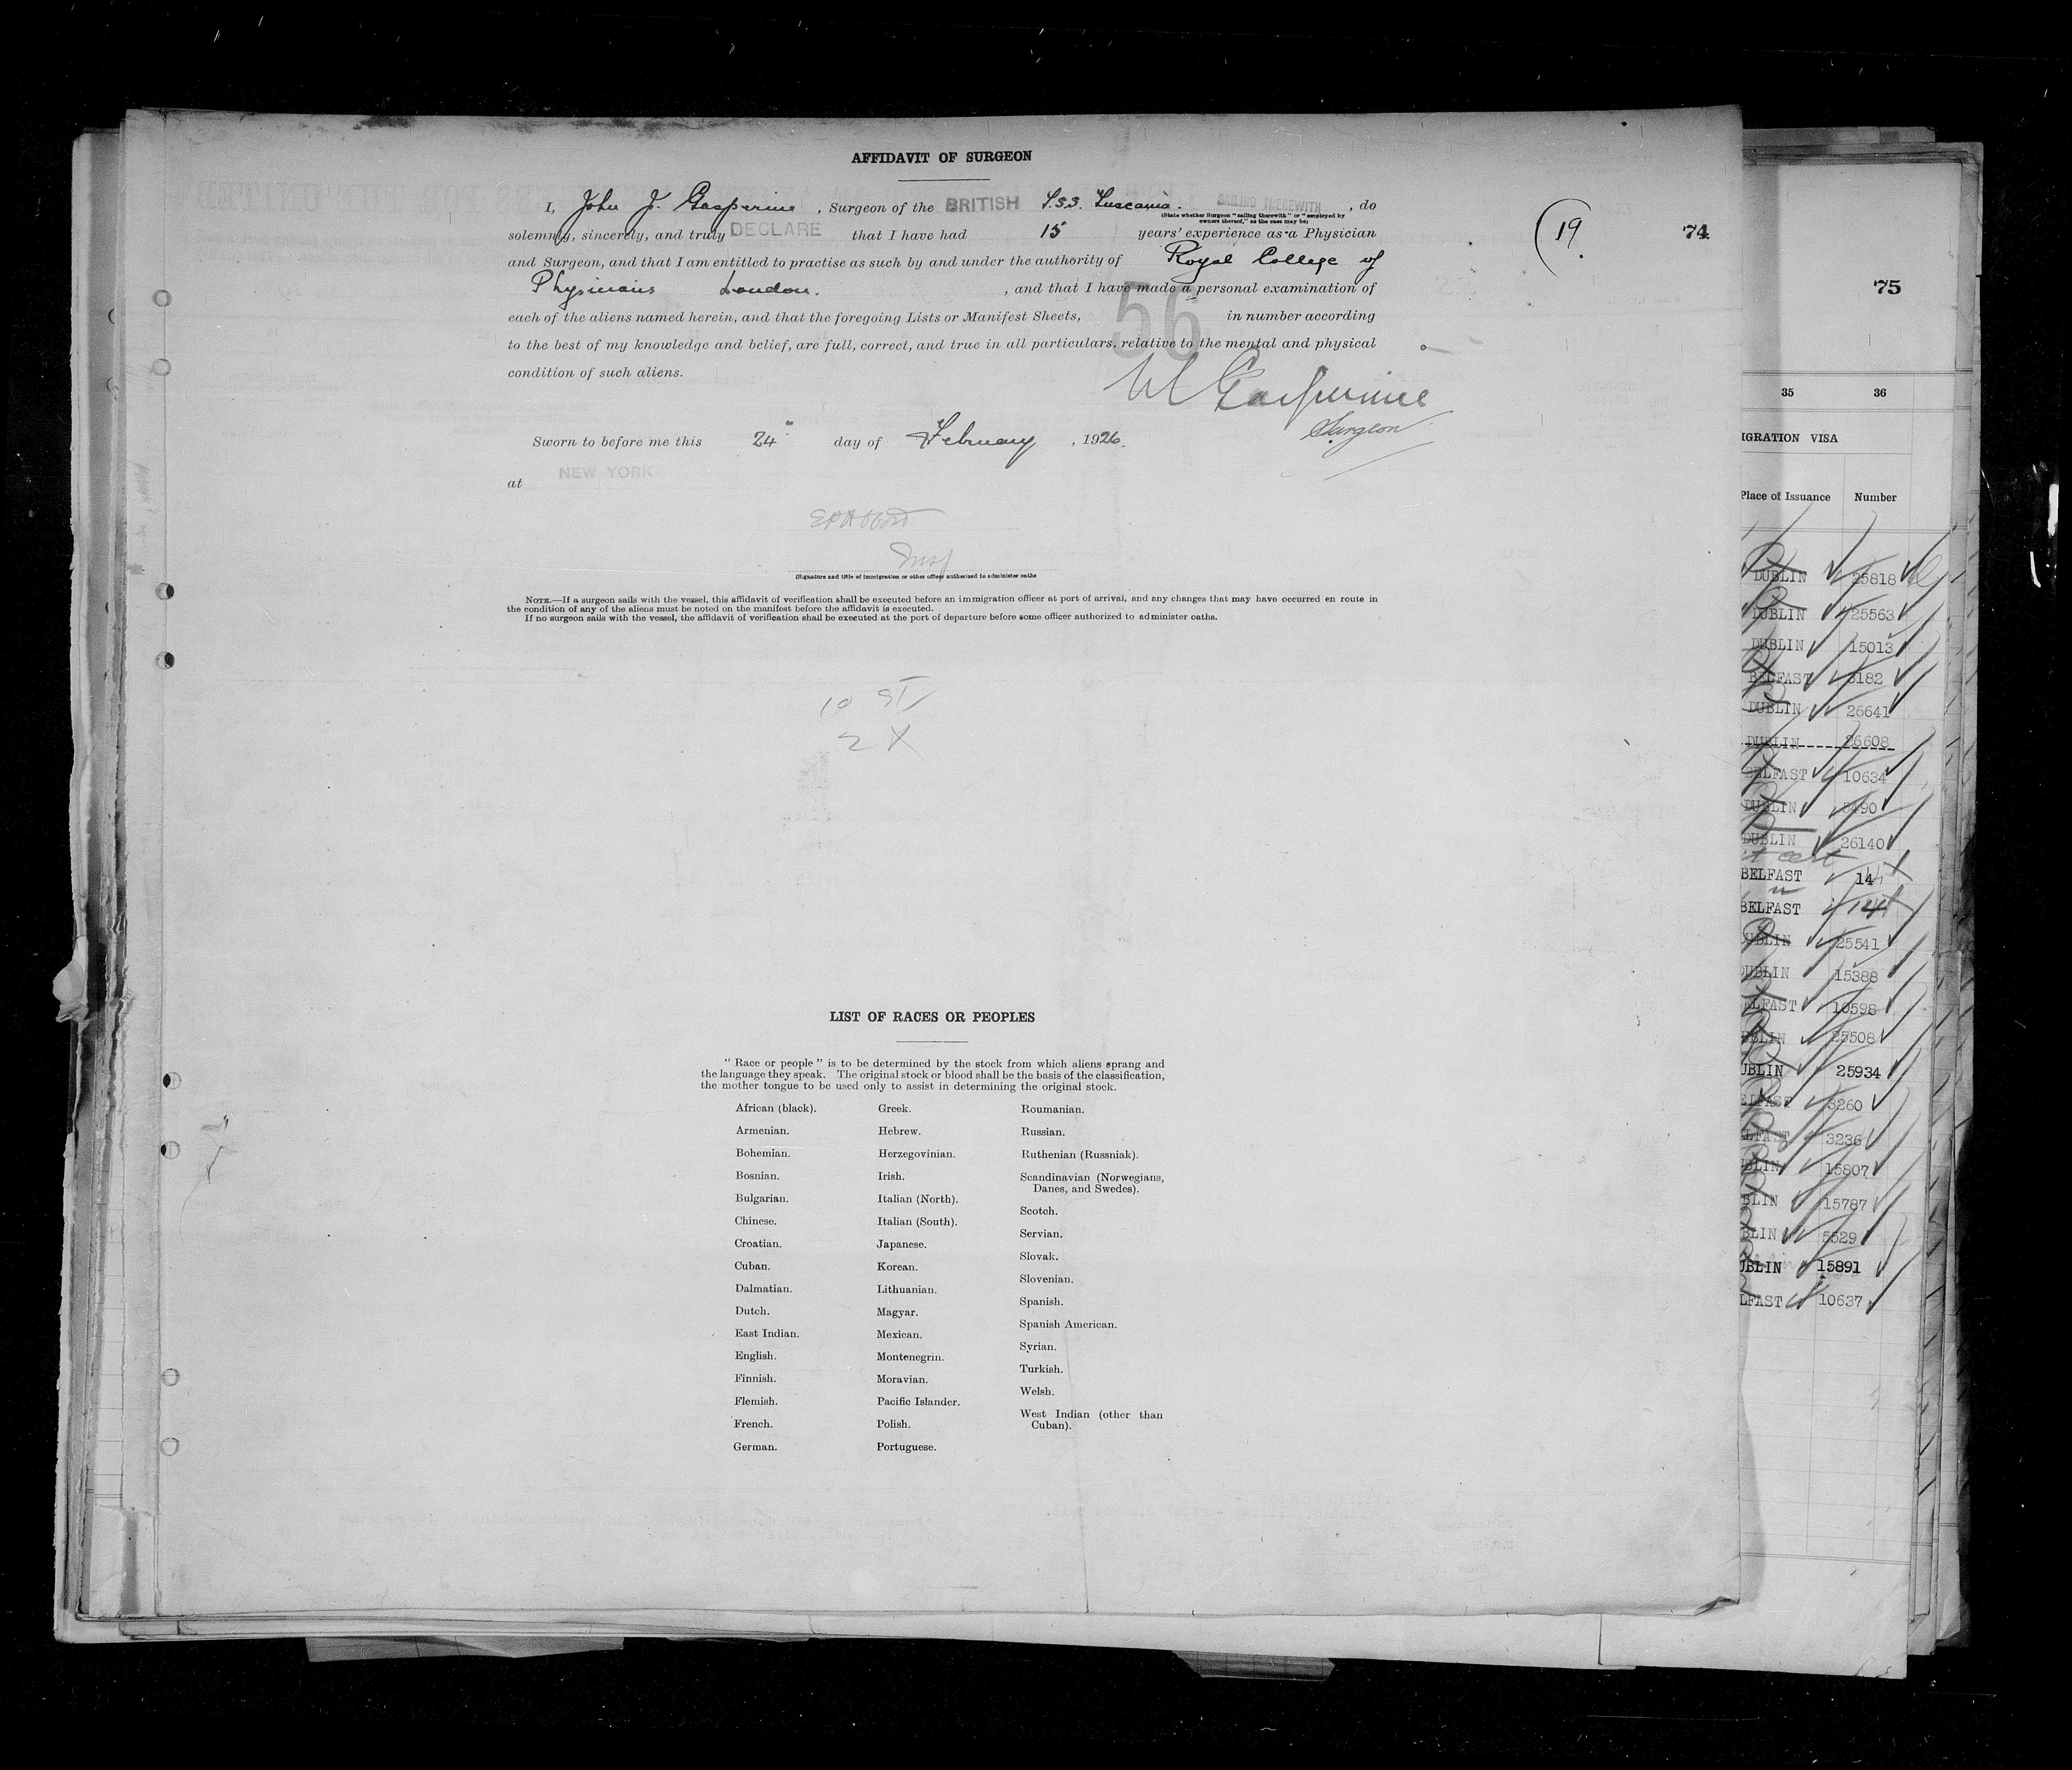 AFFIDAVIT OF SURGEON
I, John J. Gasperine, Surgeon of the BRITISH T.S.S. Tuscania. SAILING THEREWITH, do
(State whether Surgeon "sailing therewith" or "employed by
owners thereof," as the case may be)
solemnly, sincerely, and truly DECLARE that I have had 15 years' experience as a Physician
and Surgeon, and that I am entitled to practise as such by and under the authority of Royal College of
Physicians London. , and that I have made a personal examination of
each of the aliens named herein, and that the foregoing Lists or Manifest Sheets, 56 in number according
to the best of my knowledge and belief, are full, correct, and true in all particulars, relative to the mental and physical
condition of such aliens.
Gasperine
Surgeon
Sworn to before me this 24 day of February, 1926.
at NEW YORK
Insp
(Signature and title of immigration or other officer authorized to administer oaths
NOTE.—If a surgeon sails with the vessel, this affidavit of verification shall be executed before an immigration officer at port of arrival, and any changes that may have occurred en route in
the condition of any of the aliens must be noted on the manifest before the affidavit is executed.
If no surgeon sails with the vessel, the affidavit of verification shall be executed at the port of departure before some officer authorized to administer oaths.
10 ST
2 X
LIST OF RACES OR PEOPLES
"Race or people" is to be determined by the stock from which aliens sprang and
the language they speak. The original stock or blood shall be the basis of the classification,
the mother tongue to be used only to assist in determining the original stock.
African (black).
Armenian.
Bohemian.
Bosnian.
Bulgarian.
Chinese.
Croatian.
Cuban.
Dalmatian.
Dutch.
East Indian.
English.
Finnish.
Flemish.
French.
German.
Greek.
Hebrew.
Herzegovinian.
Irish.
Italian (North).
Italian (South).
Japanese.
Korean.
Lithuanian.
Magyar.
Mexican.
Montenegrin.
Moravian.
Pacific Islander.
Polish.
Portuguese.
Roumanian.
Russian.
Ruthenian (Russniak).
Scandinavian (Norwegians,
Danes, and Swedes).
Scotch.
Servian.
Slovak.
Slovenian.
Spanish.
Spanish American.
Syrian.
Turkish.
Welsh.
West Indian (other than
Cuban).
19
74
75
35 36
IGRATION VISA
Place of Issuance Number
DUBLIN 25818
DUBLIN 25563
DUBLIN 15013
BELFAST 3182
DUBLIN 26641
DUBLIN 26608
BELFAST 10634
DUBLIN 5490
DUBLIN 26140
BELFAST 14
BELFAST 14
DUBLIN 25541
DUBLIN 15388
ELFAST 10598
UBLIN 25508
UBLIN 25934
ELFAST 3260
LFAST 3236
BLIN 15807
BLIN 15787
BLIN 5529
UBLIN 15891
LFAST 10637